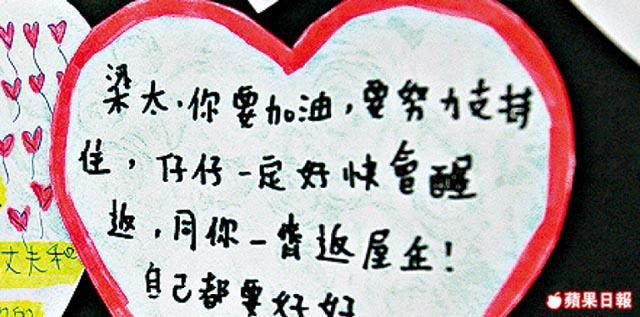 梁太，你要加油，要努力支持
住，仔仔一定好快會醒
返，同你一齊返屋企！
自己都要好好
丈夫和
蘋果日報